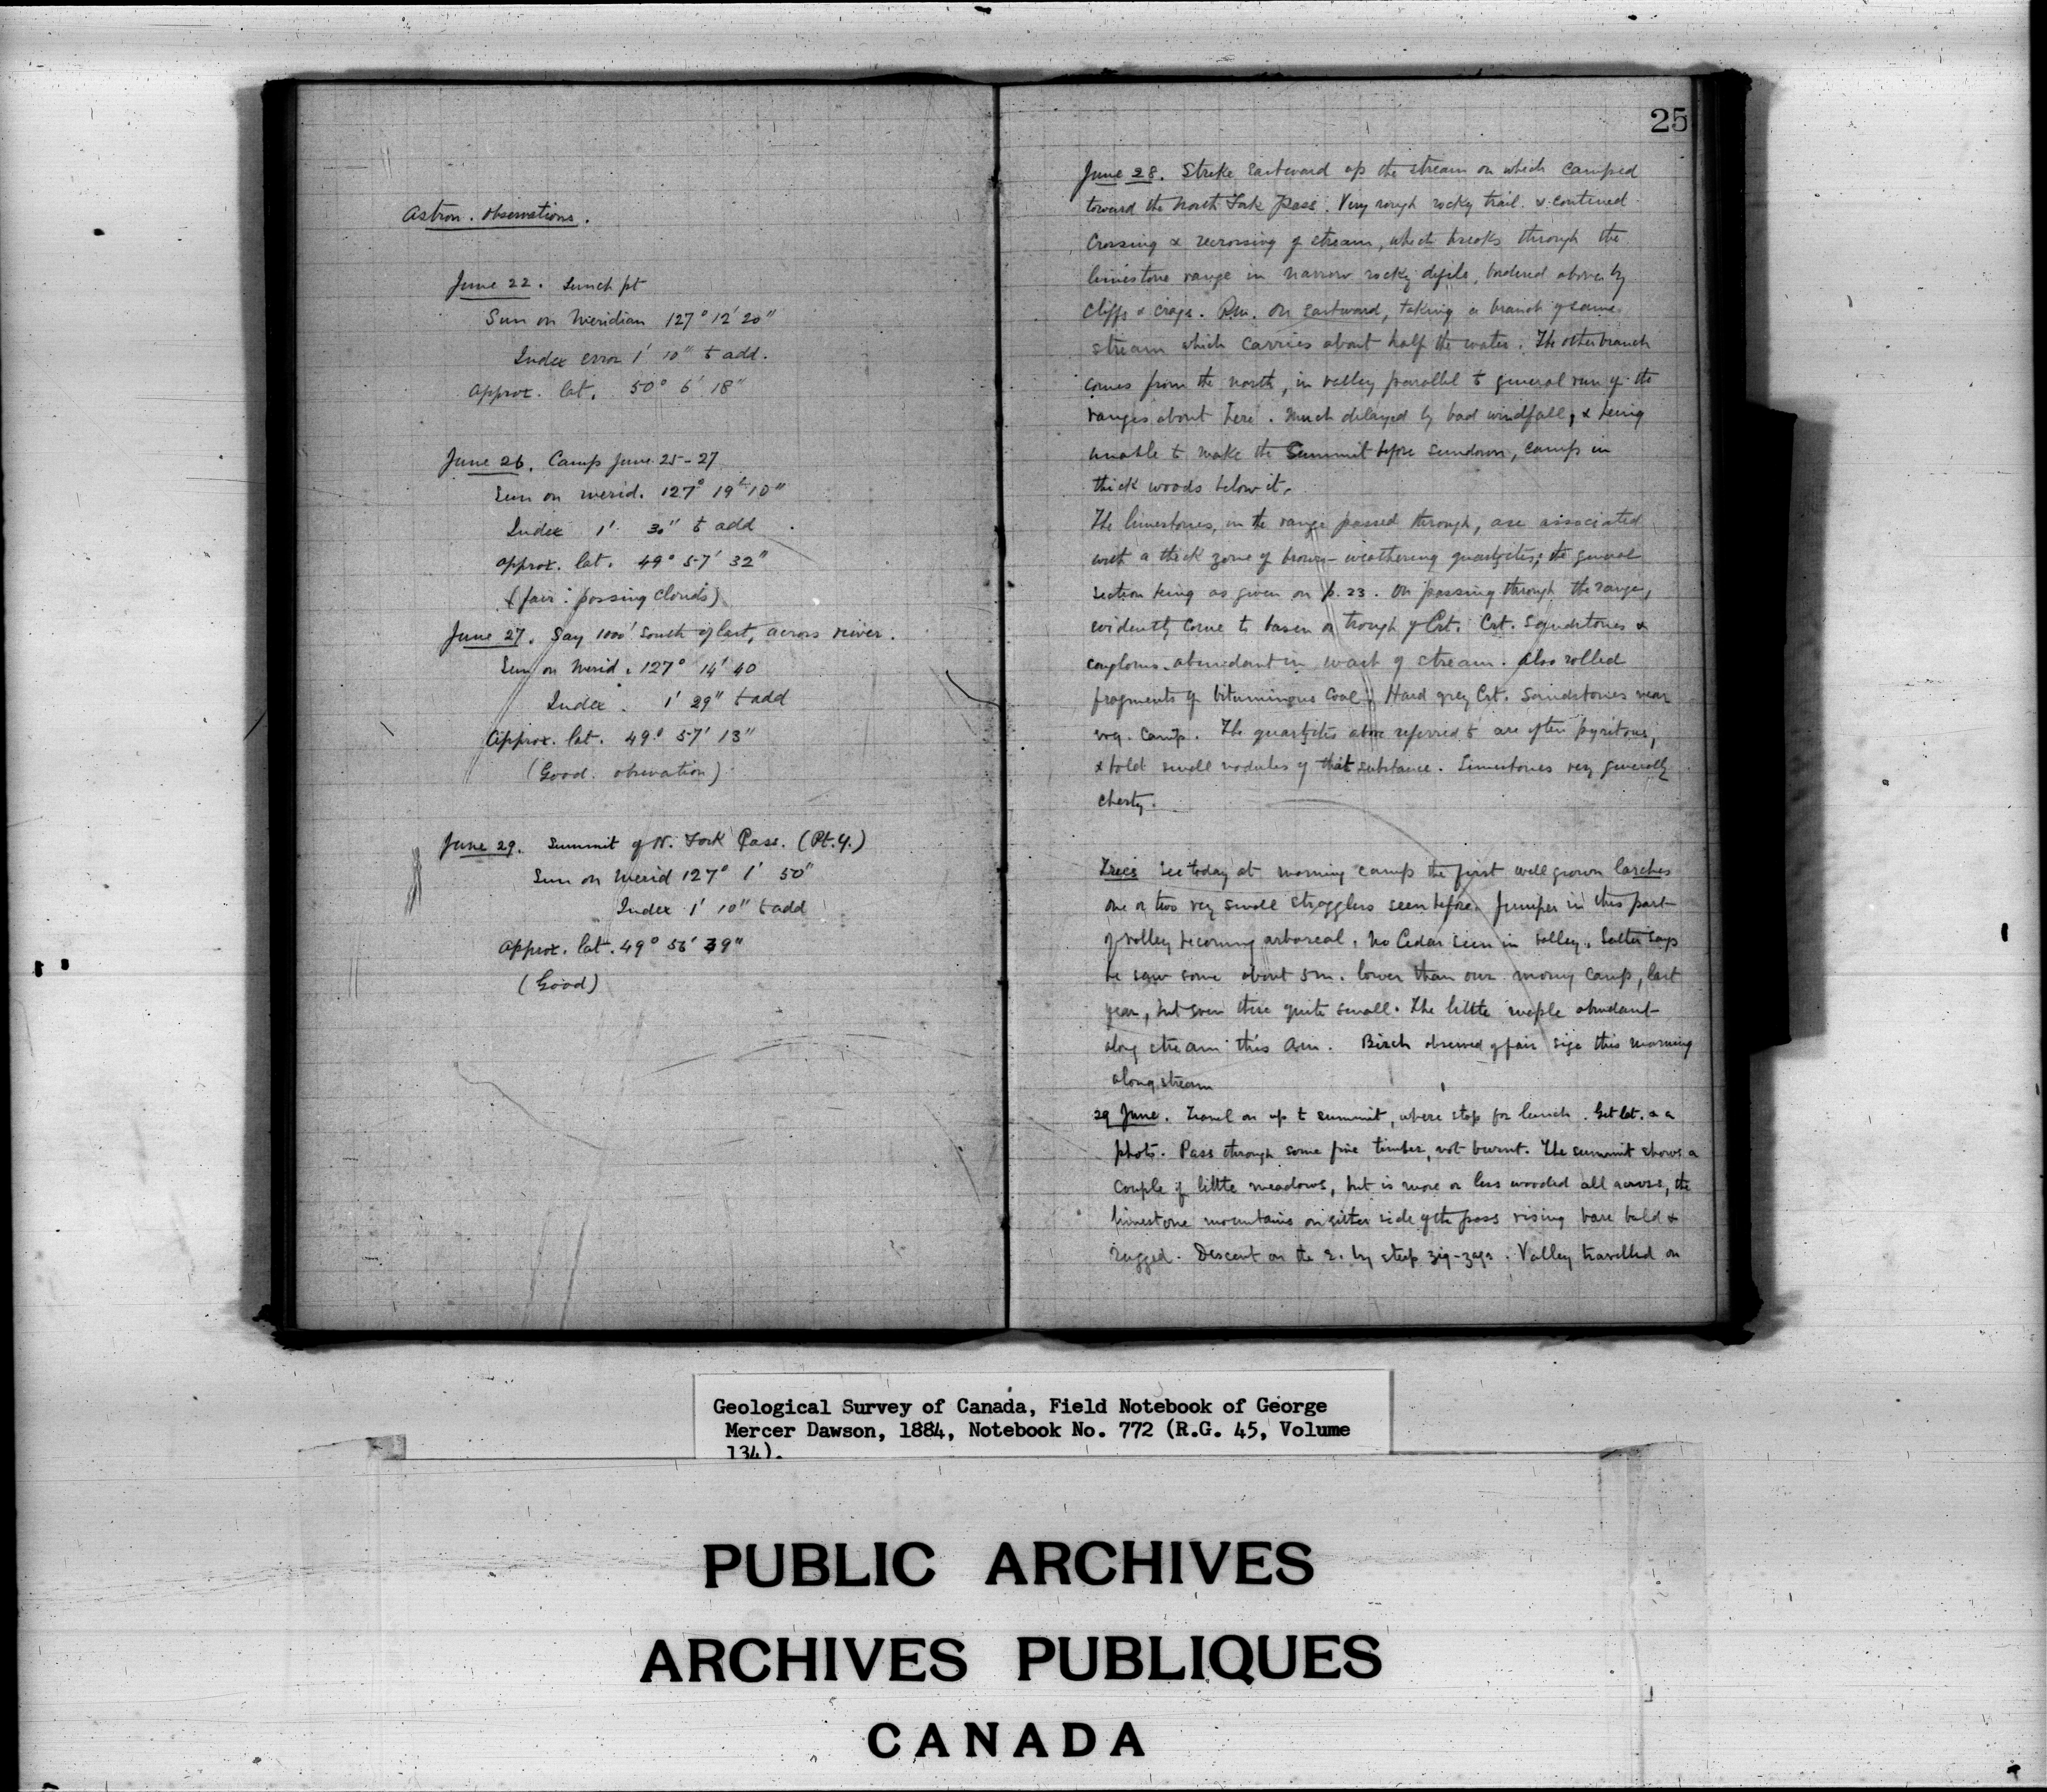 Astron. observations.
June 22. Lunch pt
Sun on Meridian 127° 12' 20"
Index error 1' 10" to add.
Approx. lat. 50° 6' 18"
June 26. Camp June 25-27
Sun on merid. 127° 19' 10"
Index 1' 30" to add
approx. lat. 49° 57' 32"
(fair: passing clouds)
June 27. Say 1000' South of last, across river.
Sun on Merid. 127° 14' 40
Index. 1' 29" to add
Approx. lat. 49° 57' 13"
(Good. observation)
June 29. Summit of N. Fork Pass. (Pt. 4.)
Sun on Merid 127° 1' 50"
Index 1' 10" to add
Approx. lat. 49° 56' 39"
(Good)
25
June 28. Strike Eastward up the stream on which camped
toward the North Fork Pass. Very rough rocky trail. & contined
Crossing & recrossing of stream, which breaks through the
limestone range in narrow rocky defile, bordered above by
Cliffs & crags. P.m. on Eastward, taking a branch of same
stream which carries about half the water. The other branch
comes from the north, in valley parallel to general run of the
ranges about here. Much delayed by bad windfall, & being
unable to make the Summit before sundown, camp in
thick woods below it.
The limestones, in the range passed through, are associated
with a thick zone of brown-weathering quartzites; the general
section being as given on p. 23. On passing through the range,
evidently come to basin or trough of Crt. Crt. Sandstones &
congloms. abundant in wash of stream. Also rolled
fragments of bituminous Coal. Hard grey Crt. Sandstones near
camp. The quartzites above referred to are often pyritous,
& hold small nodules of that substance. Limestones very generally
cherty.
Trees See today at morning camp the first well grown larches
one or two very small stragglers seen before. Juniper in this part
of valley becoming arboreal. No Cedar seen in valley. Salter says
he saw some about 5 m. lower than our morng camp, last
year, but even there quite small. The little maple abundant
along stream this a.m. Birch observed of fair size this morning
along stream
29 June. Travel on up to summit, where stop for lunch. Get lat. & a
photo. Pass through some fine timber, not burnt. The summit shows a
couple of little meadows, but is more or less wooded all across, the
limestone mountains on either side of the pass rising bare bold &
rugged. Descent on the E. by steep zig-zags. Valley travelled on
Geological Survey of Canada, Field Notebook of George
Mercer Dawson, 1884, Notebook No. 772 (R.G. 45, Volume
134).
PUBLIC ARCHIVES
ARCHIVES PUBLIQUES
CANADA